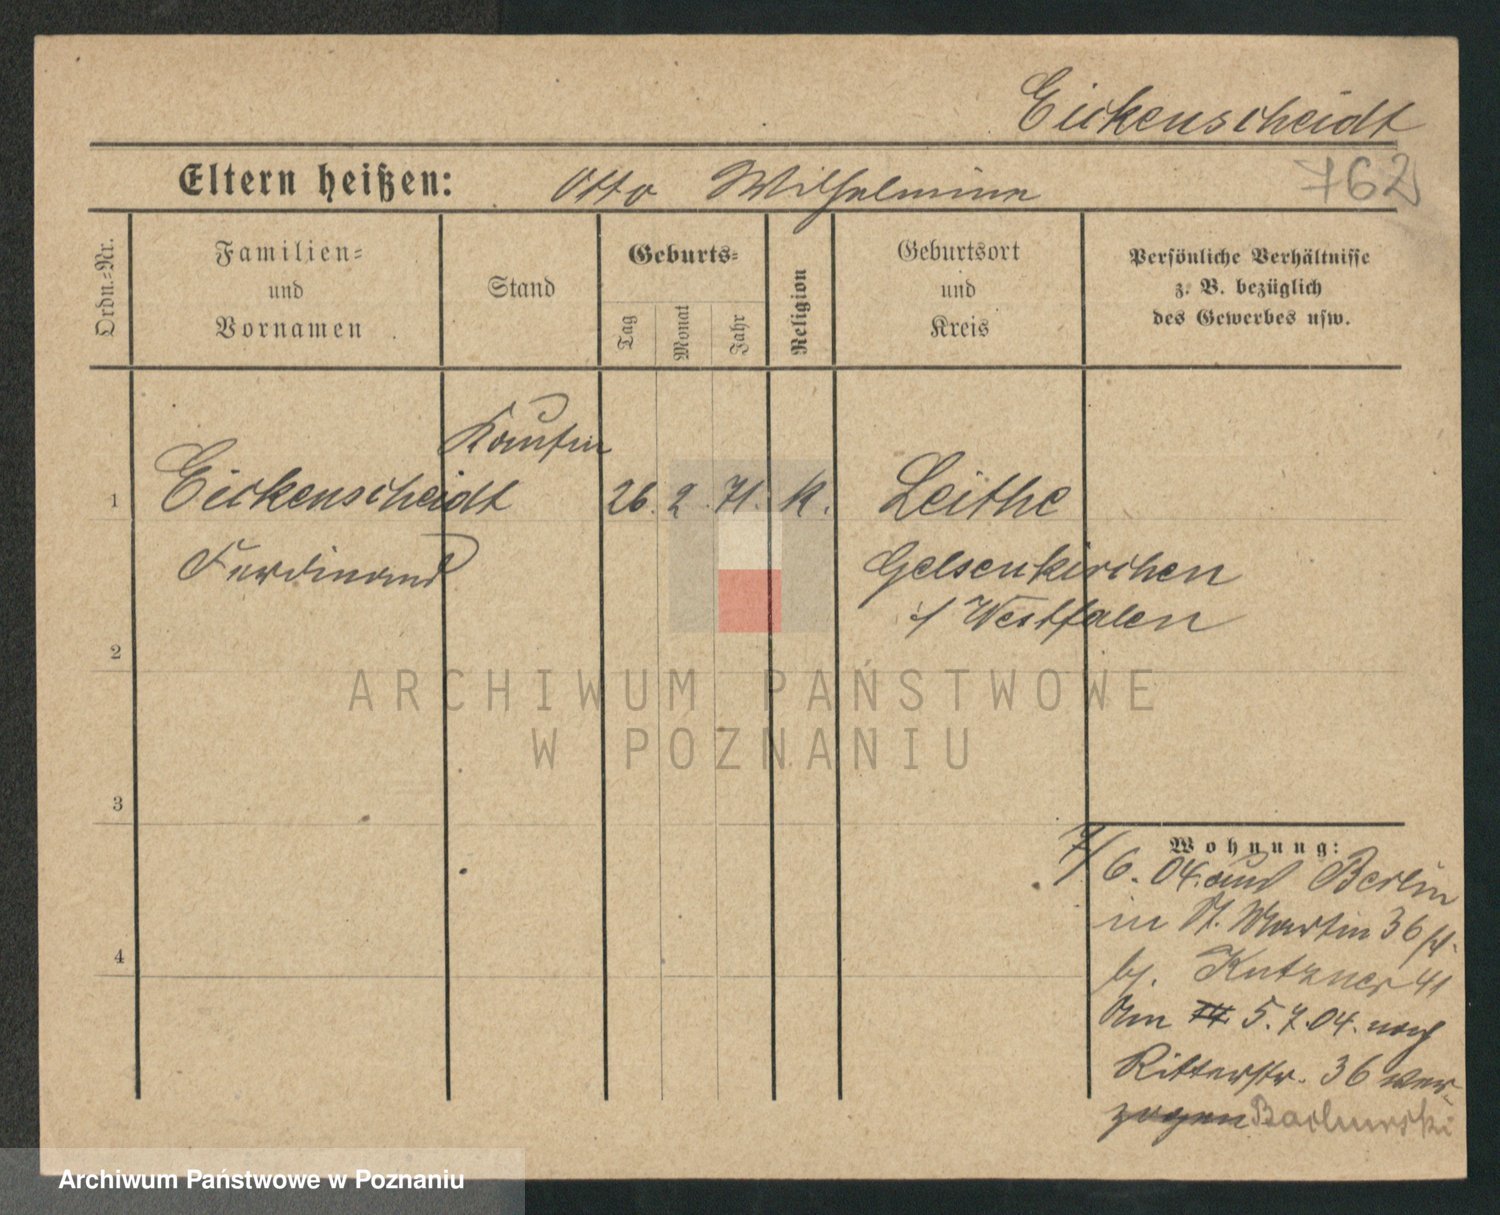 Eickenscheidt
762
Eltern heißen: Otto Wilhelmine
Ordn.=Nr.
Familien=
und
Vornamen
Stand
Geburts=
Tag
Monat
Jahr
Religion
Geburtsort
und
Kreis
Persönliche Verhältnisse
z. B. bezüglich
des Gewerbes usw.
Kaufm
1 Eickenscheidt 26. 2. 71. K. Leithe
Ferdinand Gelsenkirchen
i/ Westfalen
2
ARCHIWUM PAŃSTWOWE
W POZNANIU
3
Wohnung:
7/6. 04. aus Berlin
in St. Martin 36
bj. Kutzner 41
Am 5.7.04. nach
Ritterstr. 36 ver-
zogen
4
Archiwum Państwowe w Poznaniu